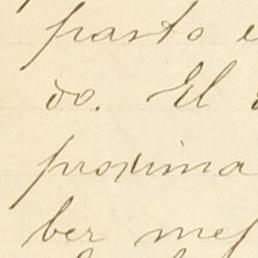 pasto e
do. El
proxima
ber mef